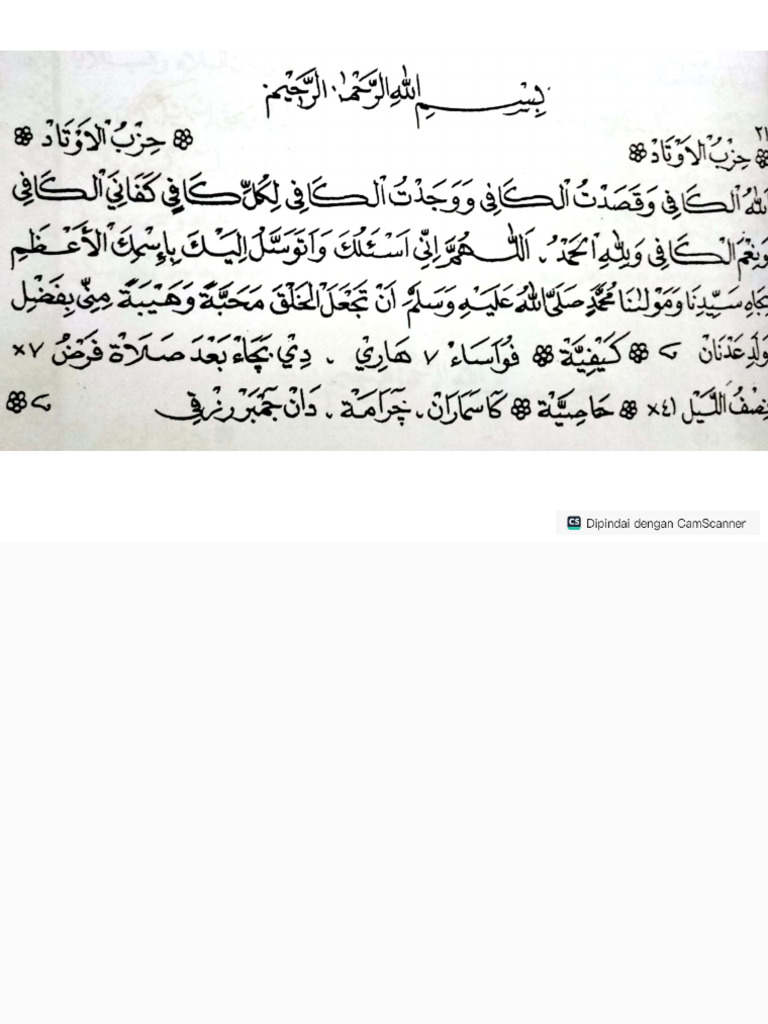 بِسْمِ اللهِ الرَّحْمٰنِ الرَّحِيْمِ
٢١
❁ حِزْبُ الْاَوْتَادْ ❁ ❁ حِزْبُ الْاَوْتَادْ ❁
اَللهُ الْكَافِى وَقَصَدْتُ الْكَافِى وَوَجَدْتُ الْكَافِى لِكُلِّ كَافِى كَفَانِيَ الْكَافِى
وَنِعْمَ الْكَافِى وَلِلّٰهِ الْحَمْدُ. اَللّٰهُمَّ اِنِّى اَسْئَلُكَ وَاَتَوَسَّلُ اِلَيْكَ بِاِسْمِكَ الْأَعْظَمِ
بِجَاهِ سَيِّدِنَا وَمَوْلٰنَا مُحَمَّدٍ صَلَّى اللهُ عَلَيْهِ وَسَلَّمَ اَنْ تَجْعَلَ الْخَلْقَ مَحَبَّةً وَهَيْبَةً مِنِّى بِفَضْلِ
وَلَدِ عَدْنَانْ ❁ كَيْفِيَّة ❁ فُوَاسَاءْ ٧ هَارِيْ . دِيْ بَچَاءْ بَعْدَ صَلَاةْ فَرْضُ ٧×
نِصْفُ اللَّيْل ٤١× ❁ حَاصِيَّة ❁ كَاسَمَارَانْ.